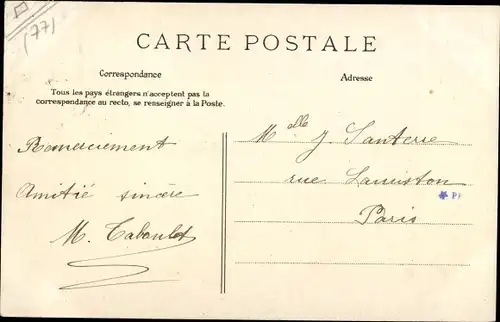 (77)
CARTE POSTALE
Correspondance
Adresse
Tous les pays étrangers n'acceptent pas la
correspondance au recto, se renseigner à la Poste.
Remerciement
Amitié sincère
M. Taboulet
Melle J. Santerre
rue Lauriston
Paris
* PF